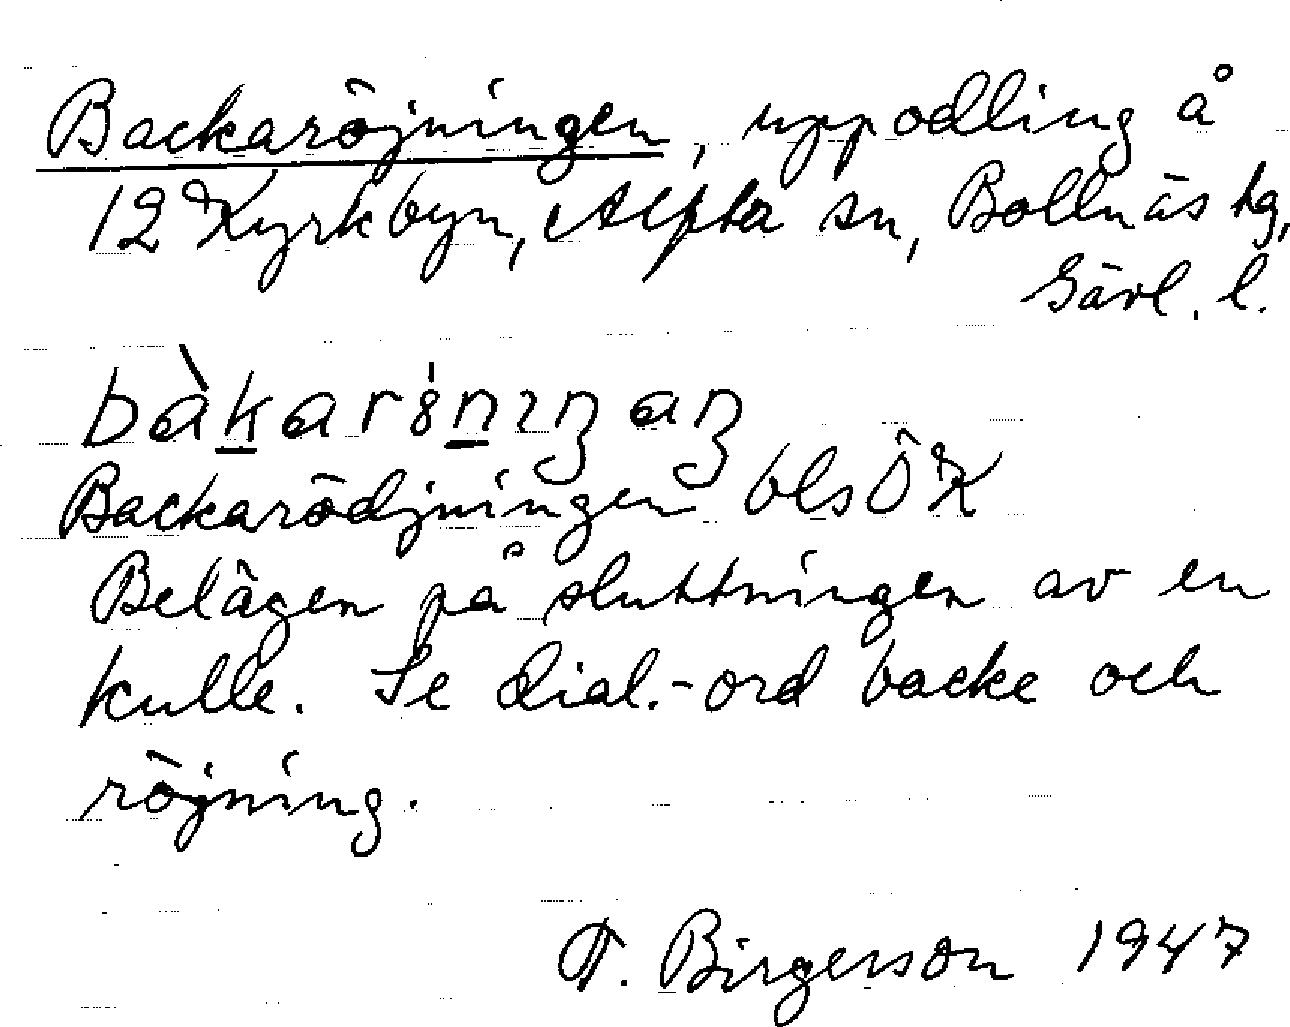 Backaröjningen, uppodling å
12 Kyrkbyn, Alfta sn, Bollnäs tg,
Gävl. l.
bàkaröniŋaŋ
Backarödjningen blsÖK
Belägen på sluttningen av en
kulle. Se dial.-ord backe och
röjning.
T. Birgerson 1947